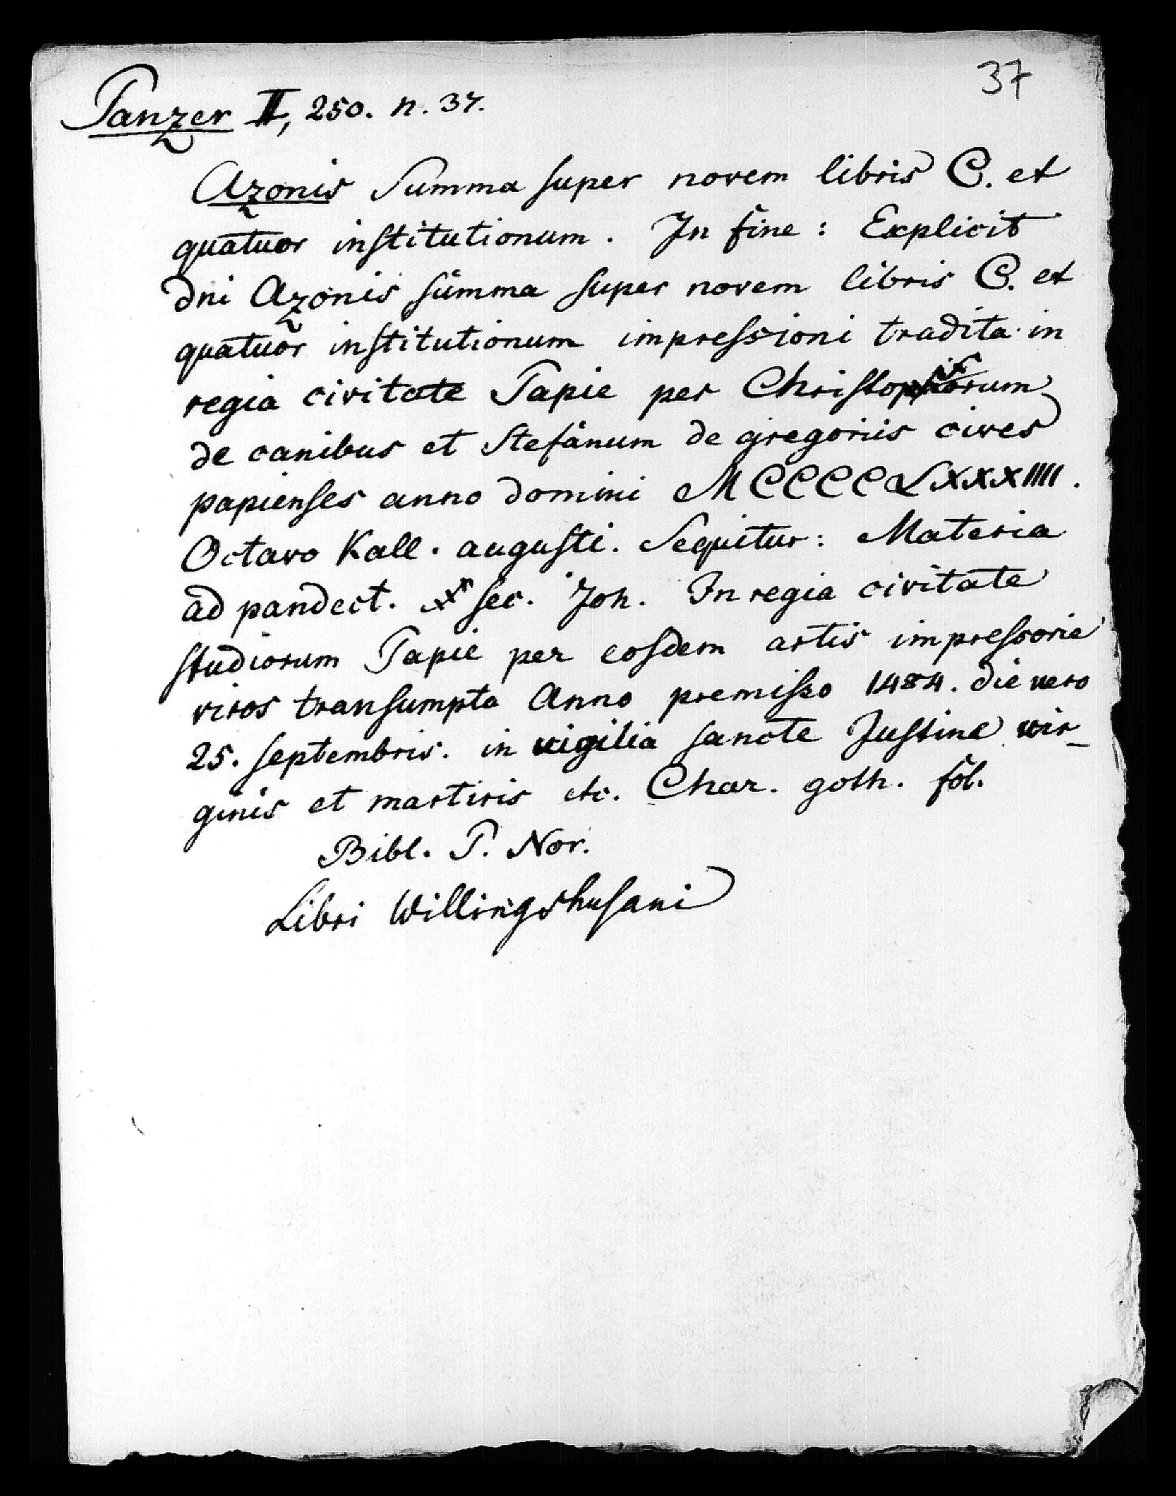 37
Panzer II, 250. n. 37.
Azonis Summa super novem libris C. et
quatuor institutionum. In fine: Explicit
dni Azonis summa super novem libris C. et
quatuor institutionum impressioni tradita in
regia civitate Papie per Christoforum
de canibus et Stefanum de gregoriis cives
papienses anno domini MCCCCLXXXIIII.
Octavo Kall. augusti. Sequitur: Materia
ad pandect. sec. Joh. In regia civitate
studiorum Papie per eosdem artis impressorie
viros transumpta Anno premisso 1484. die vero
25. septembris. in vigilia sancte Justine vir-
ginis et martiris etc. Char. goth. fol.
Bibl. P. Nor.
Libri Willingshusani